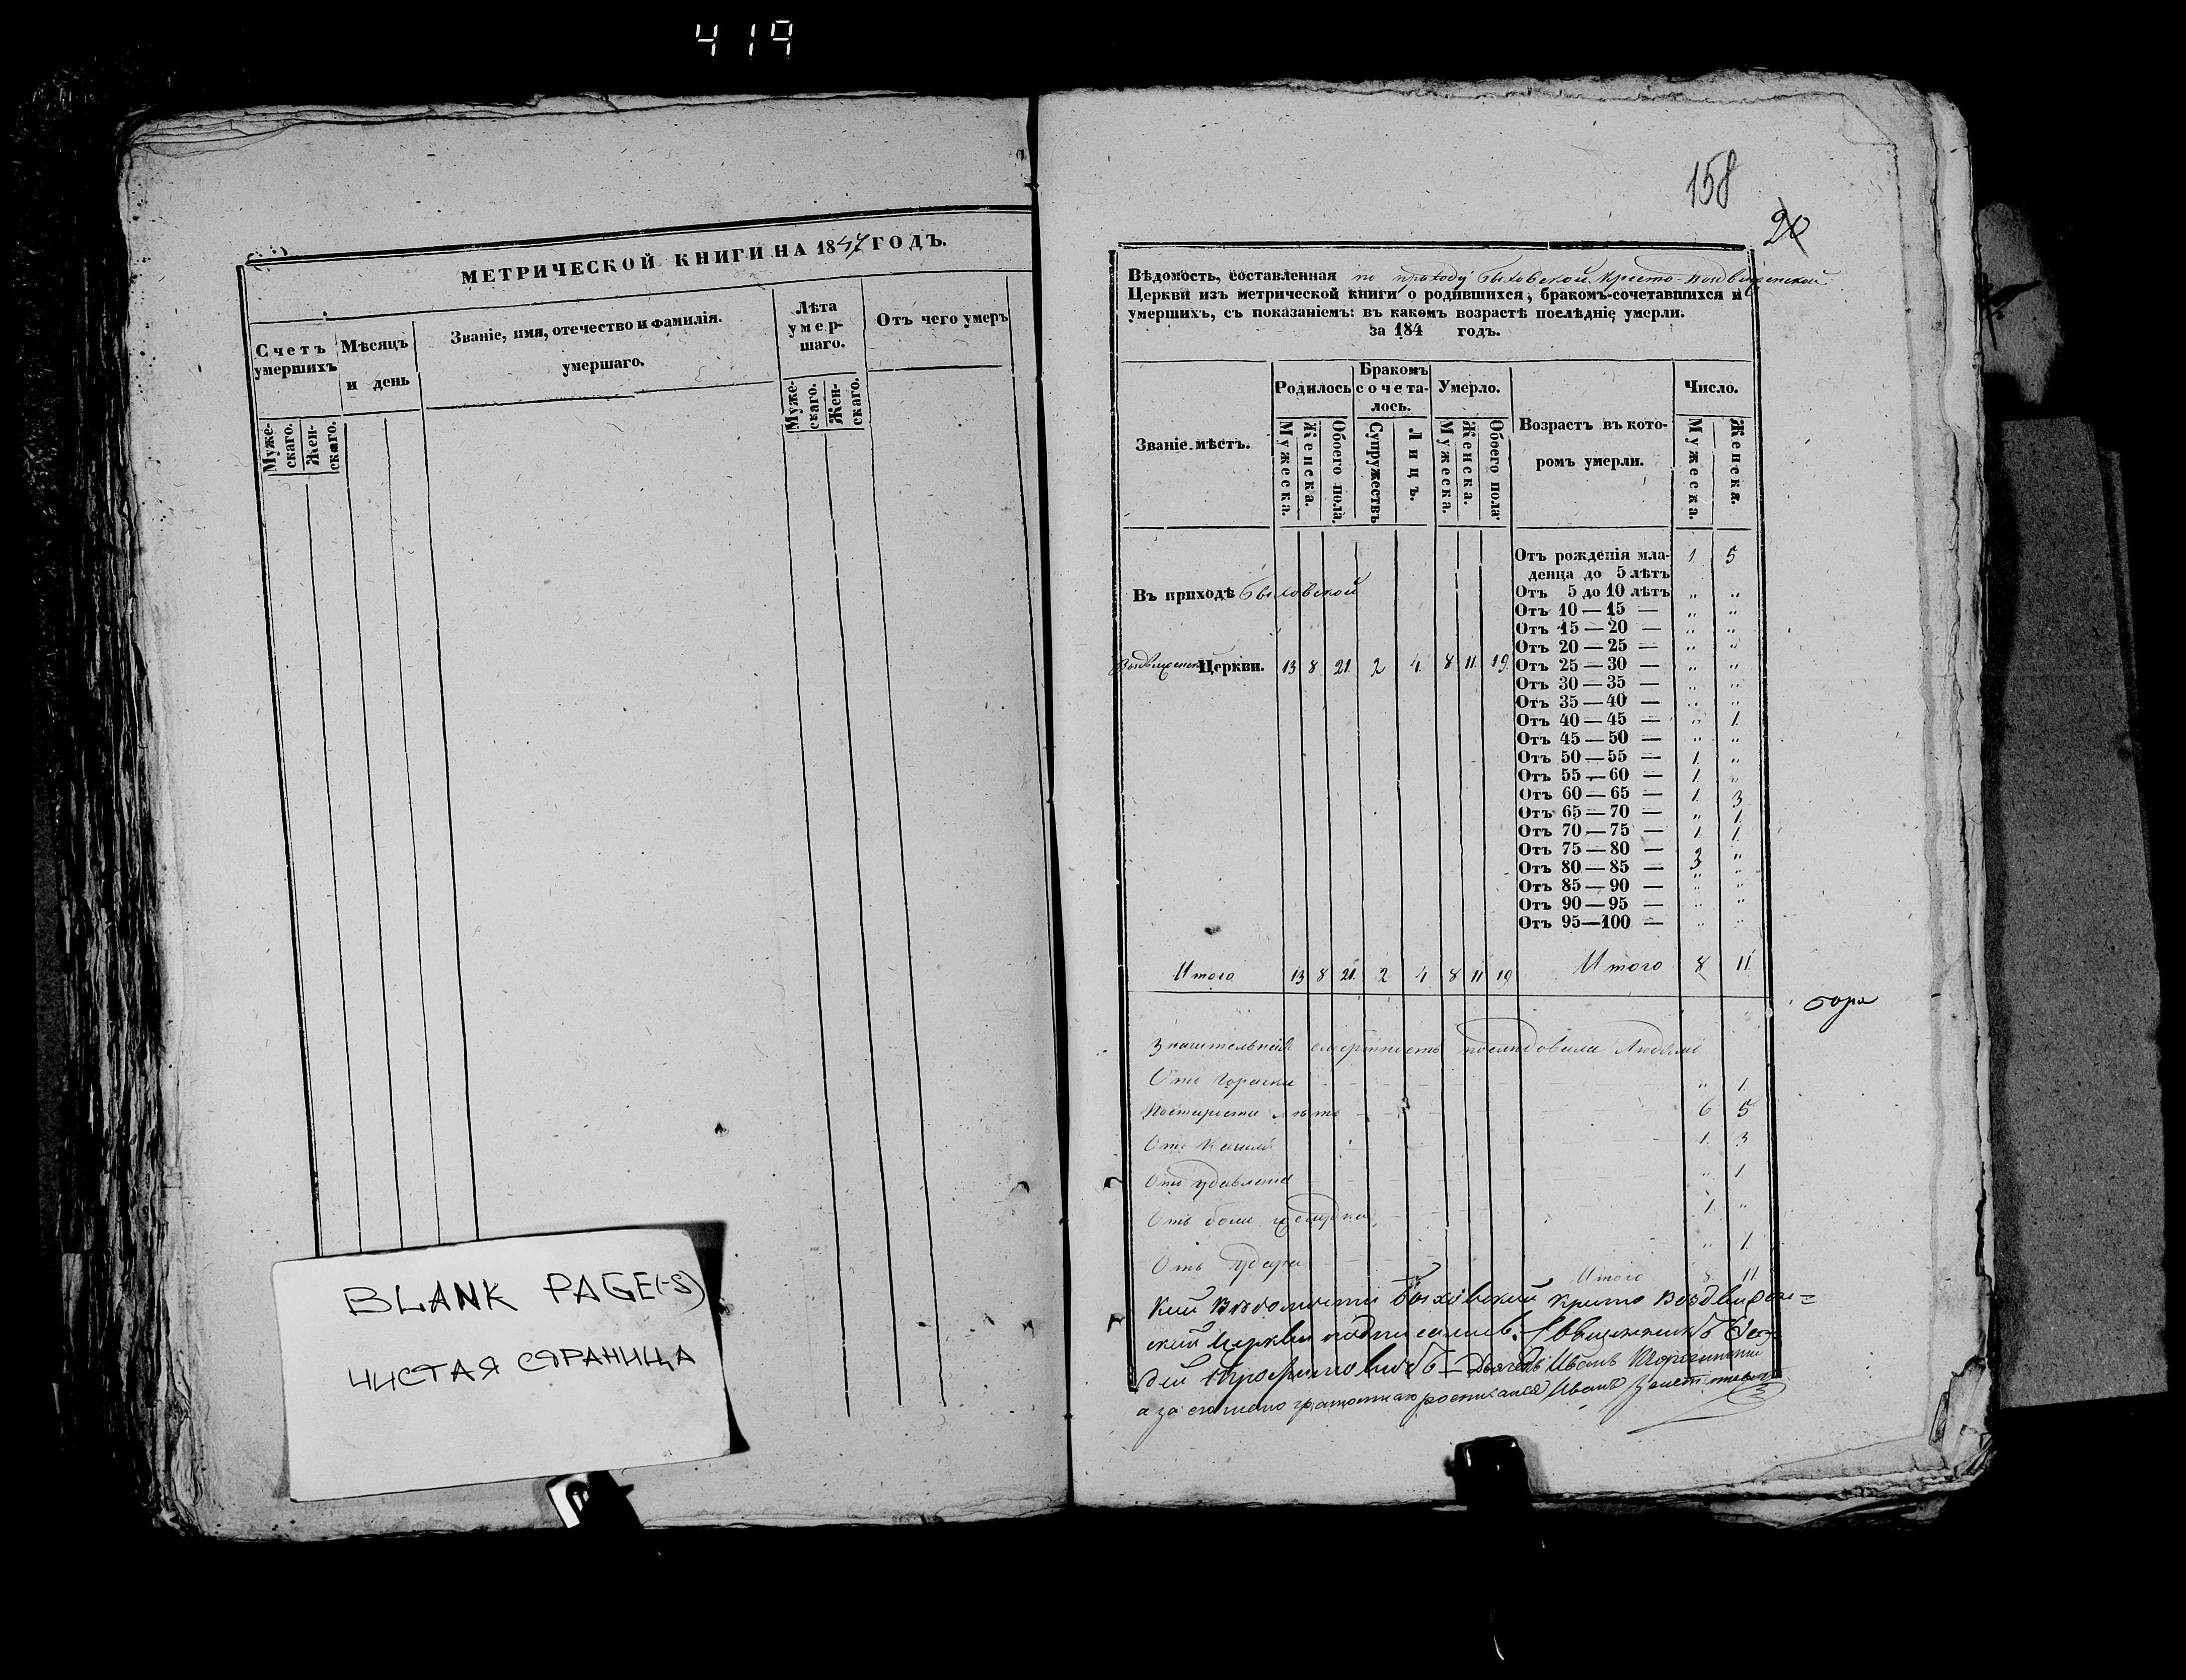 419
МЕТРИЧЕСКОЙ КНИГИ НА 1847 ГОДЪ.
Счетъ умершихъ
Мѣсяцъ и день
Званіе, имя, отечество и фамилія. умершаго.
Лѣта умер-шаго.
Отъ чего умеръ
Муже-скаго.
Жен-скаго.
Муже-скаго.
Жен-скаго.
BLANK PAGE(-S)
ЧИСТАЯ СТРАНИЦА
158
20
Вѣдомость, составленная по приходу Быховской Кресто-Воздвиженской
Церкви изъ метрической книги о родившихся, бракомъ-сочетавшихся и
умершихъ, съ показаніемъ: въ какомъ возрастѣ послѣдніе умерли.
за 184 годъ.
Званіе мѣстъ.
Родилось
Бракомъ сочета-лось.
Умерло.
Возрастъ въ кото-ромъ умерли.
Число.
Мужеска. Женска. Обоего пола. Супружествъ Лицъ. Мужеска. Женска. Обоего пола. Мужеска. Женска.
Въ приходѣ Быховской
Воздвиженской Церкви. 13 8 21. 2 4. 8 11. 19.
Отъ рожденія мла- 1. 5
денца до 5 лѣтъ
Отъ 5 до 10 лѣтъ „ „
Отъ 10 — 15 — „ „
Отъ 15 — 20 — „ „
Отъ 20 — 25 — „ „
Отъ 25 — 30 — „ „
Отъ 30 — 35 — „ „
Отъ 35 — 40 — „ „
Отъ 40 — 45 — „ 1.
Отъ 45 — 50 — „ „
Отъ 50 — 55 — 1. „
Отъ 55 — 60 — 1. „
Отъ 60 — 65 — 1. 3
Отъ 65 — 70 — „ 1.
Отъ 70 — 75 — 1. 1.
Отъ 75 — 80 — „
Отъ 80 — 85 — „
Отъ 85 — 90 — „ „
Отъ 90 — 95 — „ „
Отъ 95—100 — „ „
Итого 13 8 21. 2 4 8 11 19 Итого 8 11.
смертность последовала
Отъ „ 1.
лѣтъ 6 5
Отъ Кашля 1. 3
Отъ „ 1
Отъ боли 1. „
Отъ удара „ 1.
Итого 8. 11
Вѣдомости Быховской Кресто Воздвижен=
ской Церкви подписались: Священникъ
Дьячекъ Иванъ
Иванъ